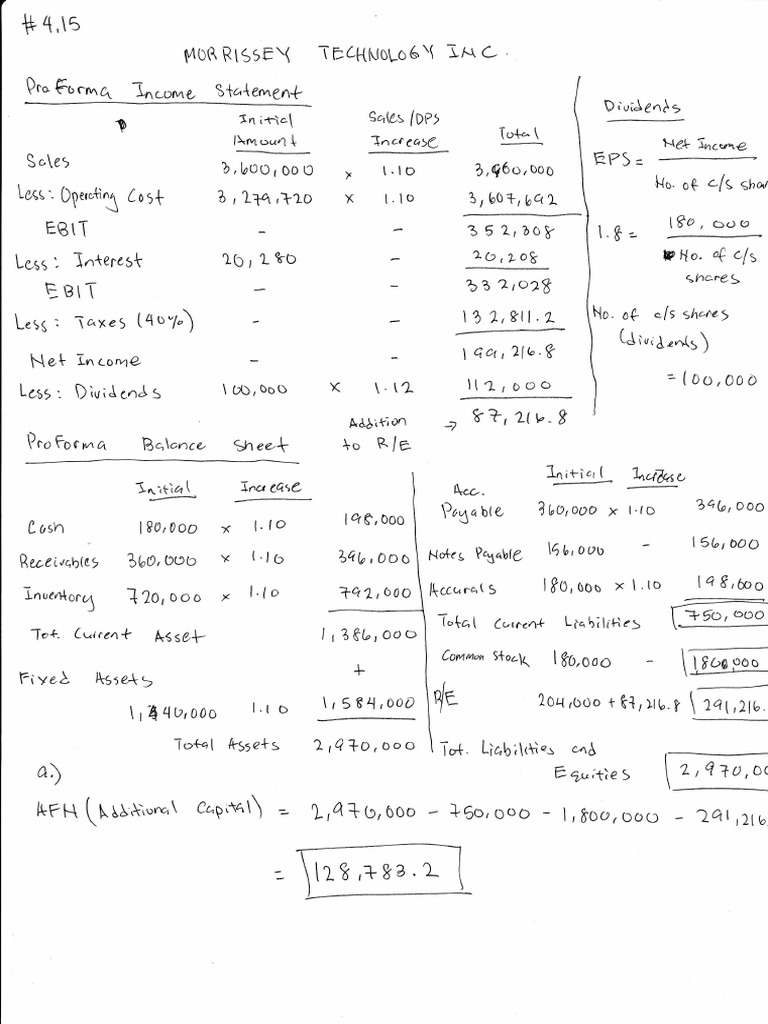 #4.15
MORRISSEY TECHNOLOGY INC.
Pro Forma Income Statement
Initial Amount Sales/DPS Increase Total
Sales 3,600,000 x 1.10 3,960,000
Less: Operating Cost 3,279,720 x 1.10 3,607,692
EBIT - - 352,308
Less: Interest 20,280 - 20,208
EBIT - - 332,028
Less: Taxes (40%) - - 132,811.2
Net Income - - 199,216.8
Less: Dividends 100,000 x 1.12 112,000
Addition to R/E → 87,216.8
Dividends
EPS = Net Income
No. of c/s shar
1.8 = 180,000
No. of c/s
shares
No. of c/s shares
(dividends)
= 100,000
Pro Forma Balance Sheet
Initial Increase
Cash 180,000 x 1.10 198,000
Receivables 360,000 x 1.10 396,000
Inventory 720,000 x 1.10 792,000
Tot. Current Asset 1,386,000
+
Fixed Assets
1,440,000 1.10 1,584,000
Total Assets 2,970,000
Initial Increase
Acc.
Payable 360,000 x 1.10 396,000
Notes Payable 156,000 - 156,000
Accurals 180,000 x 1.10 198,000
Total Current Liabilities 750,000
Common Stock 180,000 - 1800,000
R/E 204,000 + 87,216.8 291,216.
Tot. Liabilities and
Equities 2,970,00
a.)
AFN (Additional Capital) = 2,970,000 - 750,000 - 1,800,000 - 291,216
= 128,783.2